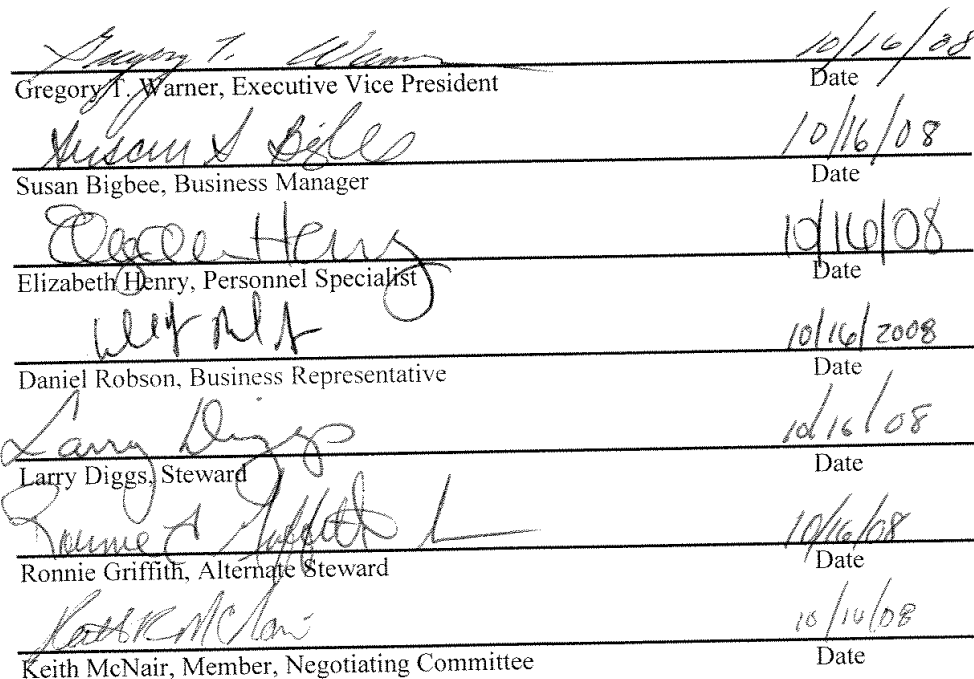 Gregory T. Warner 10/16/08
Gregory T. Warner, Executive Vice President Date
Susan S Bigbee 10/16/08
Susan Bigbee, Business Manager Date
Henry 10/16/08
Elizabeth Henry, Personnel Specialist Date
10/16/2008
Daniel Robson, Business Representative Date
Larry Diggs 10/16/08
Larry Diggs, Steward Date
Ronnie Griffith 10/16/08
Ronnie Griffith, Alternate Steward Date
Keith R McNair 10/16/08
Keith McNair, Member, Negotiating Committee Date